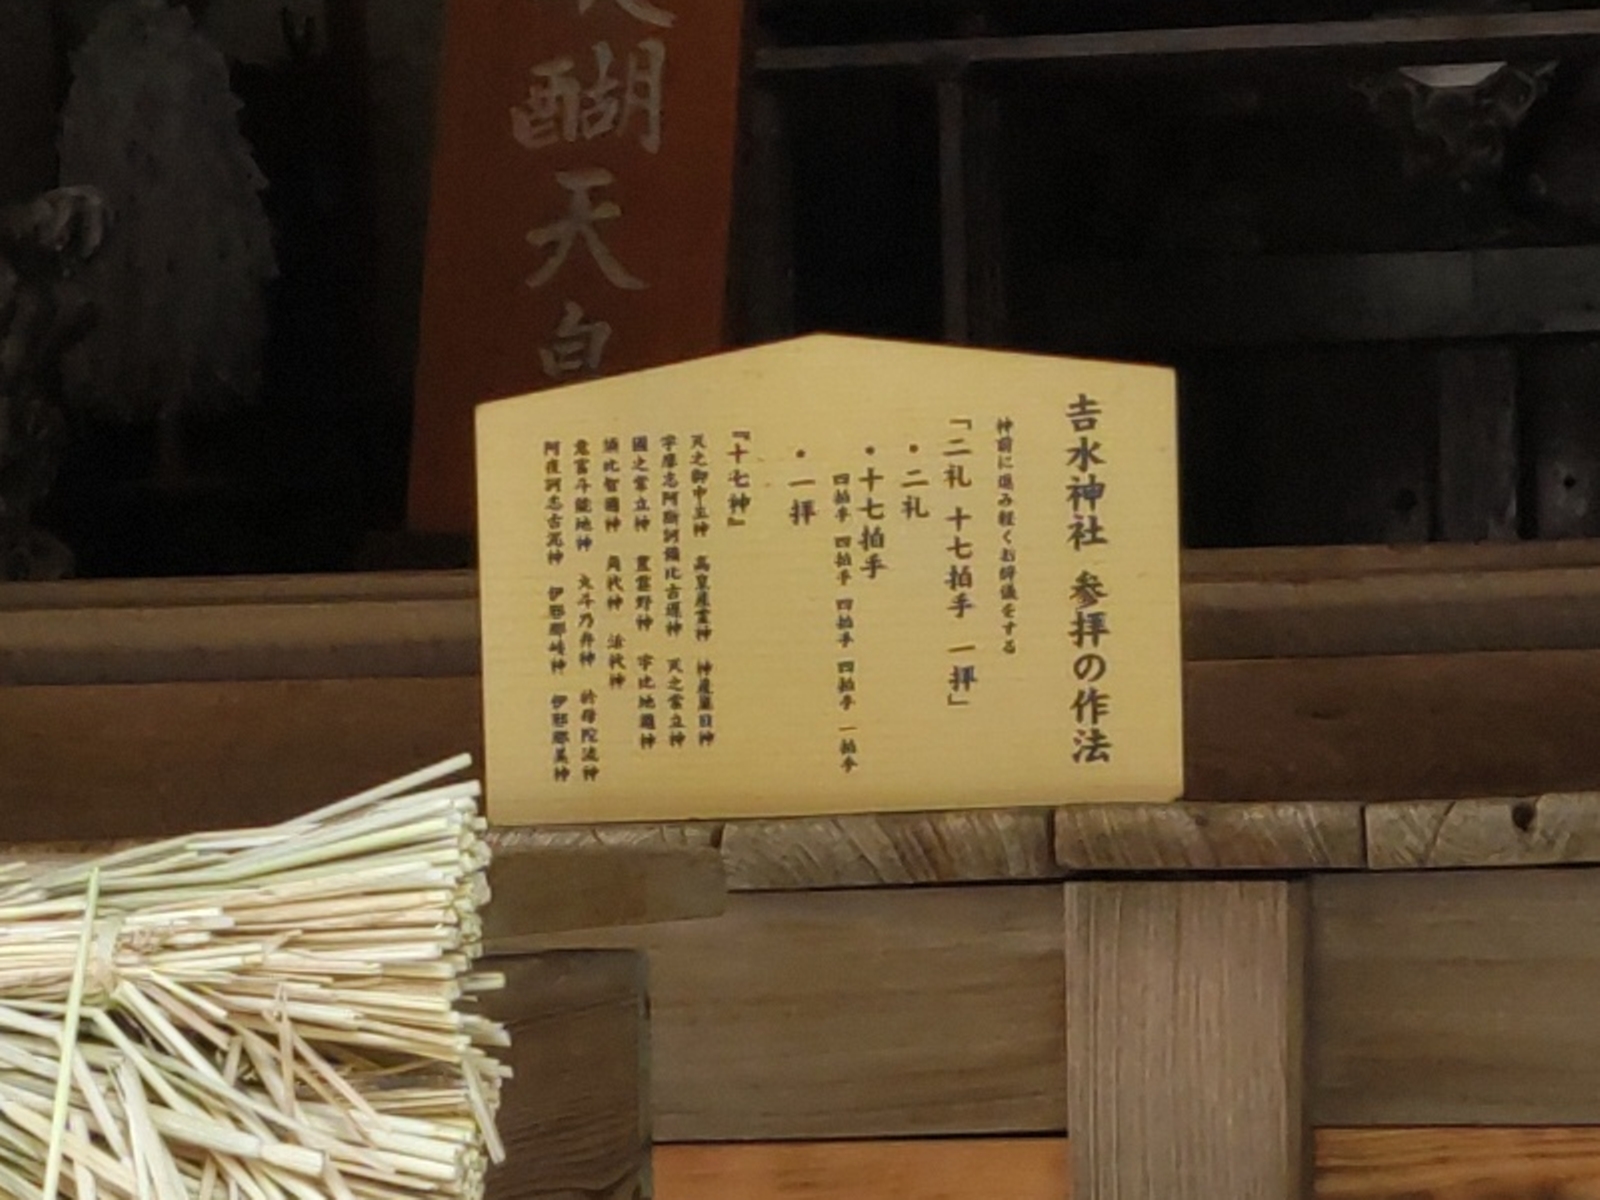 吉水神社 参拝の作法
神前に進み軽くお辞儀をする
「二礼 十七拍手 一拝」
・二礼
・十七拍手
四拍手 四拍手 四拍手 四拍手 一拍手
・一拝
『十七神』
天之御中主神 高皇産霊神 神産巣日神
宇摩志阿斯訶備比古遅神 天之常立神
國之常立神 豊雲野神 宇比地邇神
須比智邇神 角杙神 活杙神
意富斗能地神 大斗乃弁神 於母陀流神
阿夜訶志古泥神 伊邪那岐神 伊邪那美神
醐天皇